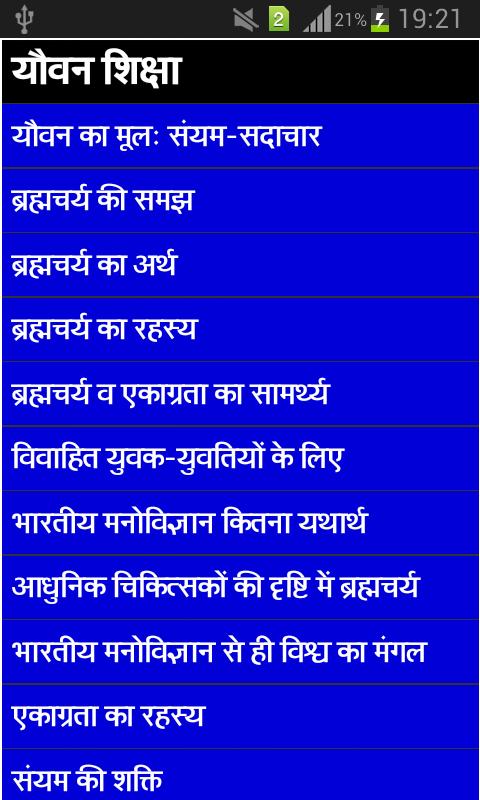 2 21% 19:21
यौवन शिक्षा
यौवन का मूलः संयम-सदाचार
ब्रह्मचर्य की समझ
ब्रह्मचर्य का अर्थ
ब्रह्मचर्य का रहस्य
ब्रह्मचर्य व एकाग्रता का सामर्थ्य
विवाहित युवक-युवतियों के लिए
भारतीय मनोविज्ञान कितना यथार्थ
आधुनिक चिकित्सकों की दृष्टि में ब्रह्मचर्य
भारतीय मनोविज्ञान से ही विश्व का मंगल
एकाग्रता का रहस्य
संयम की शक्ति